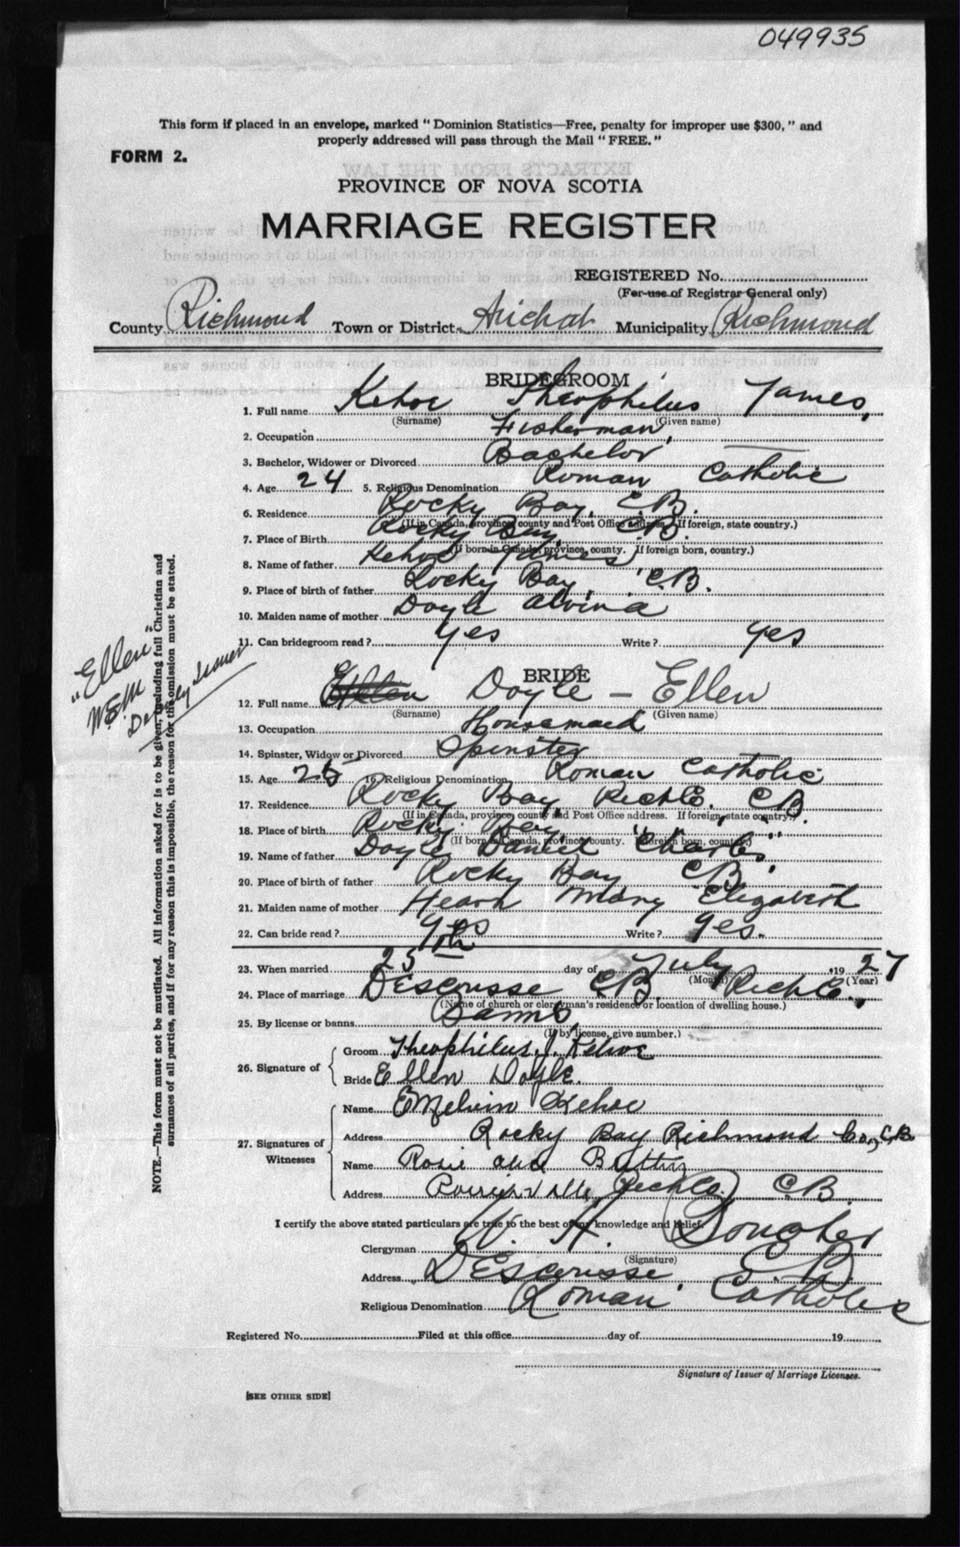 049935
This form if placed in an envelope, marked "Dominion Statistics—Free, penalty for improper use $300," and
properly addressed will pass through the Mail "FREE."
FORM 2.
PROVINCE OF NOVA SCOTIA
MARRIAGE REGISTER
REGISTERED No.
(For use of Registrar General only)
County Richmond Town or District Arichat Municipality Richmond
BRIDEGROOM
1. Full name Kehoe Theophilus James,
(Surname) (Given name)
2. Occupation Fisherman
3. Bachelor, Widower or Divorced Bachelor
4. Age 24 5. Religious Denomination Roman Catholic
6. Residence Rocky Bay, C.B.
(If in Canada, province, county and Post Office address. If foreign, state country.)
7. Place of Birth Rocky Bay C.B.
(If born in Canada, province, county. If foreign born, country.)
8. Name of father Kehoe James
9. Place of birth of father Rocky Bay C.B.
10. Maiden name of mother Doyle Alvina
11. Can bridegroom read? Yes Write? Yes
BRIDE
12. Full name Doyle – Ellen
(Surname) (Given name)
13. Occupation Housemaid
14. Spinster, Widow or Divorced Spinster
15. Age 26 16. Religious Denomination Roman Catholic
17. Residence Rocky Bay, Rich Co. CB
(If in Canada, province, county and Post Office address. If foreign, state country.)
18. Place of birth Rocky Bay
(If born in Canada, province, county. If foreign born, country.)
19. Name of father Doyle Daniel "Charles"
20. Place of birth of father Rocky Bay C.B.
21. Maiden name of mother Hearn Mary Elizabeth
22. Can bride read? Yes Write? Yes.
23. When married 25th day of July 1927
(Month) (Year)
24. Place of marriage Descousse C.B. Rich Co.
(Name of church or clergyman's residence or location of dwelling house.)
25. By license or banns Banns
(If by license, give number.)
26. Signature of
Groom Theophilus J. Kehoe
Bride Ellen Doyle.
27. Signatures of Witnesses
Name Melvin Kehoe
Address Rocky Bay Richmond Co., C.B.
Name Rosie
Address Rich Co. C.B.
I certify the above stated particulars are true to the best of my knowledge and belief.
Clergyman W. H.
(Signature)
Address Descousse, C.B.
Religious Denomination Roman Catholic
Registered No. Filed at this office day of 19
Signature of Issuer of Marriage Licenses.
[SEE OTHER SIDE]
NOTE.—This form must not be mutilated. All information asked for is to be given, including full Christian and
surnames of all parties, and if for any reason this is impossible, the reason for the omission must be stated.
"Ellen"
Deputy Issuer